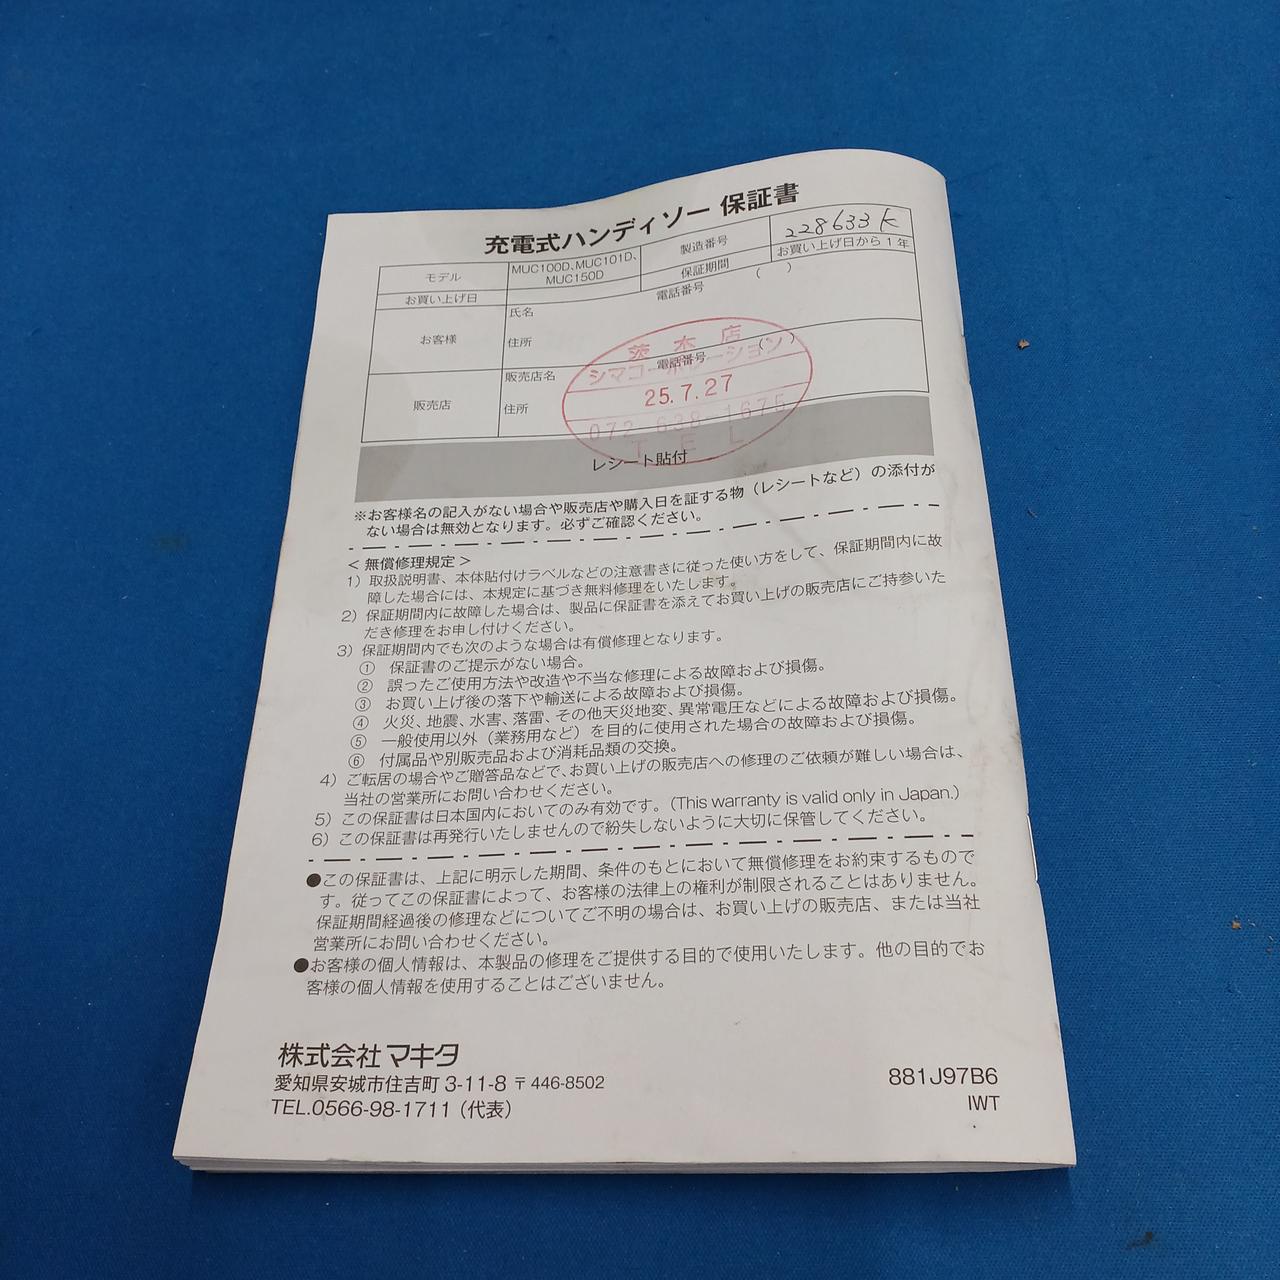 充電式ハンディソー 保証書
モデル
MUC100D、MUC101D、
MUC150D
製造番号
228633K
保証期間
お買い上げ日から1年
お買い上げ日
お客様
氏名
電話番号
( )
住所
販売店
販売店名
電話番号
( )
住所
茨木店
シマコーポレーション
25.7.27
072-638-1675
TEL
レシート貼付
※お客様名の記入がない場合や販売店や購入日を証する物（レシートなど）の添付が
ない場合は無効となります。必ずご確認ください。
＜無償修理規定＞
1）取扱説明書、本体貼付けラベルなどの注意書きに従った使い方をして、保証期間内に故
障した場合には、本規定に基づき無料修理をいたします。
2）保証期間内に故障した場合は、製品に保証書を添えてお買い上げの販売店にご持参いた
だき修理をお申し付けください。
3）保証期間内でも次のような場合は有償修理となります。
① 保証書のご提示がない場合。
② 誤ったご使用方法や改造や不当な修理による故障および損傷。
③ お買い上げ後の落下や輸送による故障および損傷。
④ 火災、地震、水害、落雷、その他天災地変、異常電圧などによる故障および損傷。
⑤ 一般使用以外（業務用など）を目的に使用された場合の故障および損傷。
⑥ 付属品や別販売品および消耗品類の交換。
4）ご転居の場合やご贈答品などで、お買い上げの販売店への修理のご依頼が難しい場合は、
当社の営業所にお問い合わせください。
5）この保証書は日本国内においてのみ有効です。(This warranty is valid only in Japan.)
6）この保証書は再発行いたしませんので紛失しないように大切に保管してください。
●この保証書は、上記に明示した期間、条件のもとにおいて無償修理をお約束するもので
す。従ってこの保証書によって、お客様の法律上の権利が制限されることはありません。
保証期間経過後の修理などについてご不明の場合は、お買い上げの販売店、または当社
営業所にお問い合わせください。
●お客様の個人情報は、本製品の修理をご提供する目的で使用いたします。他の目的でお
客様の個人情報を使用することはございません。
株式会社マキタ
愛知県安城市住吉町 3-11-8 〒446-8502
TEL.0566-98-1711（代表）
881J97B6
IWT